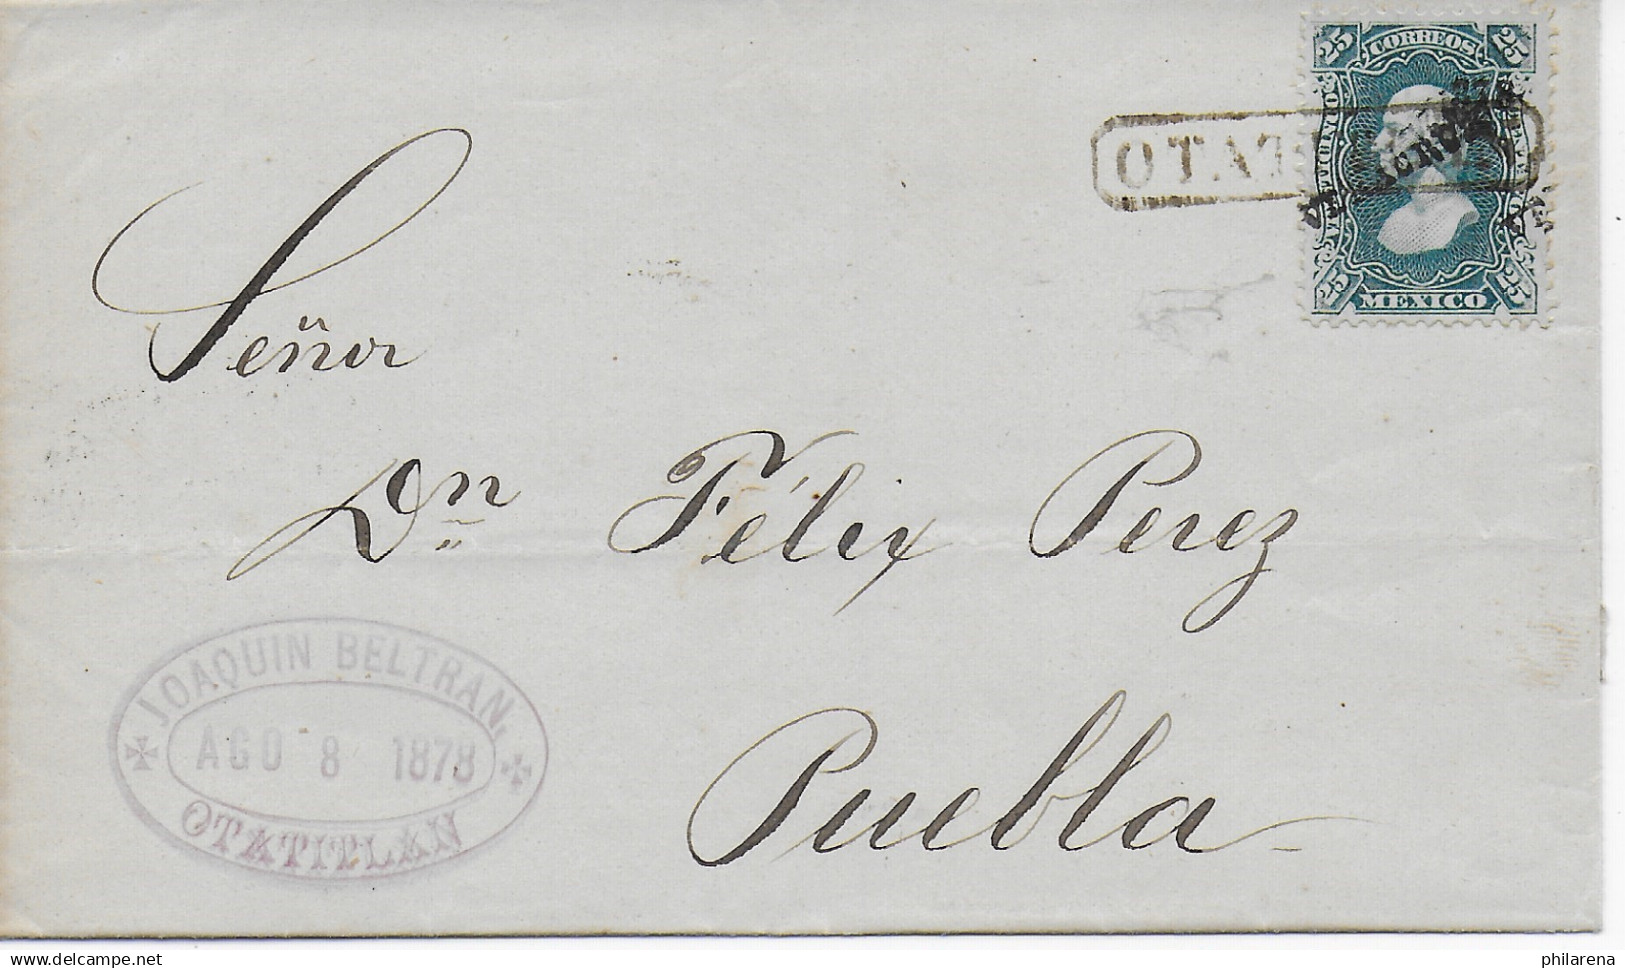 25 CORREOS 25
MEXICO
25 25
Señor
Dn Félix Perez
Puebla
JOAQUIN BELTRAN,
AGO 8 1878
OTATITLAN
delcampe.net
philarena